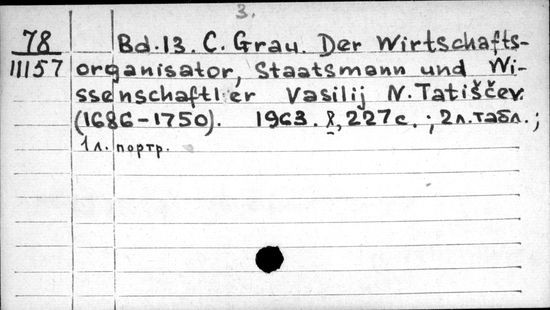 3.
78 Bd.13. C. Grau. Der Wirtschafts-
11157 organisator, Staatsmann und Wi-
ssenschaftler Vasilij N. Tatiščev.
(1686-1750). 1963. 8, 227 с.; 2 л. табл.;
1 л. портр.